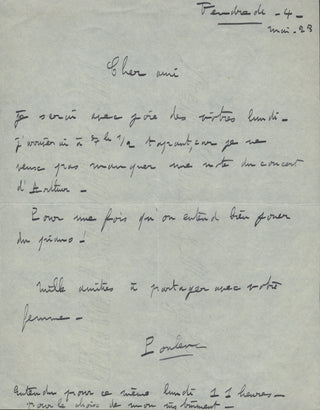 Vendredi - 4 -
mai - 23
Cher ami
Je serai avec joie des vôtres lundi -
J'arriverai à 8h 1/2 tapant, car je ne
veux pas manquer une note du concert
d'Arthur -
Pour une fois qu'on entend bien jouer
du piano!
Mille amitiés à partager avec votre
femme -
Poulenc
Entendu pour ce même lundi 11 heures -
pour le choix de mon instrument -